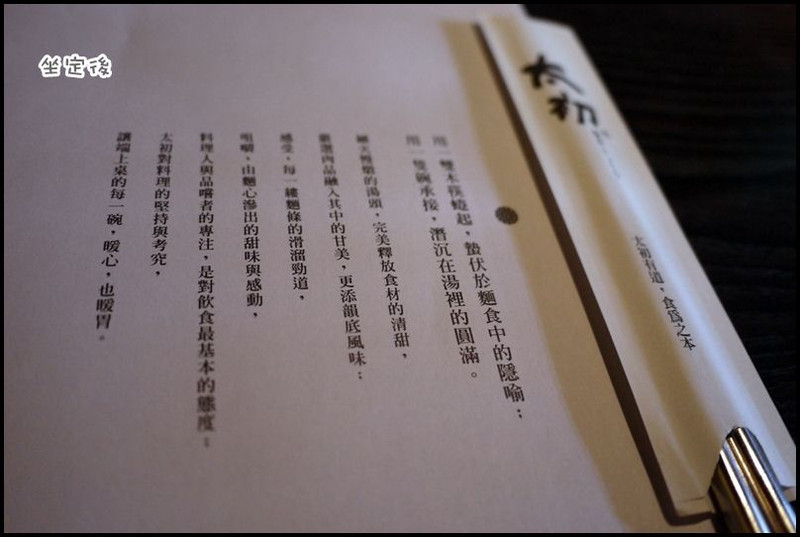 坐定後
太初
太初有道，食爲之本
用一雙木筷撓起，蟄伏於麵食中的隱喻；
用一雙碗承接，潛沉在湯裡的圓滿。
鎮天慢燉的湯頭，完美釋放食材的清甜，
嚴選肉品融入其中的甘美，更添韻底風味；
感受，每一縷麵條的滑溜勁道，
咀嚼，由麵心滲出的甜味與感動，
料理人與品嚐者的專注，是對飲食最基本的態度；
太初對料理的堅持與考究，
讓端上桌的每一碗，暖心，也暖胃。